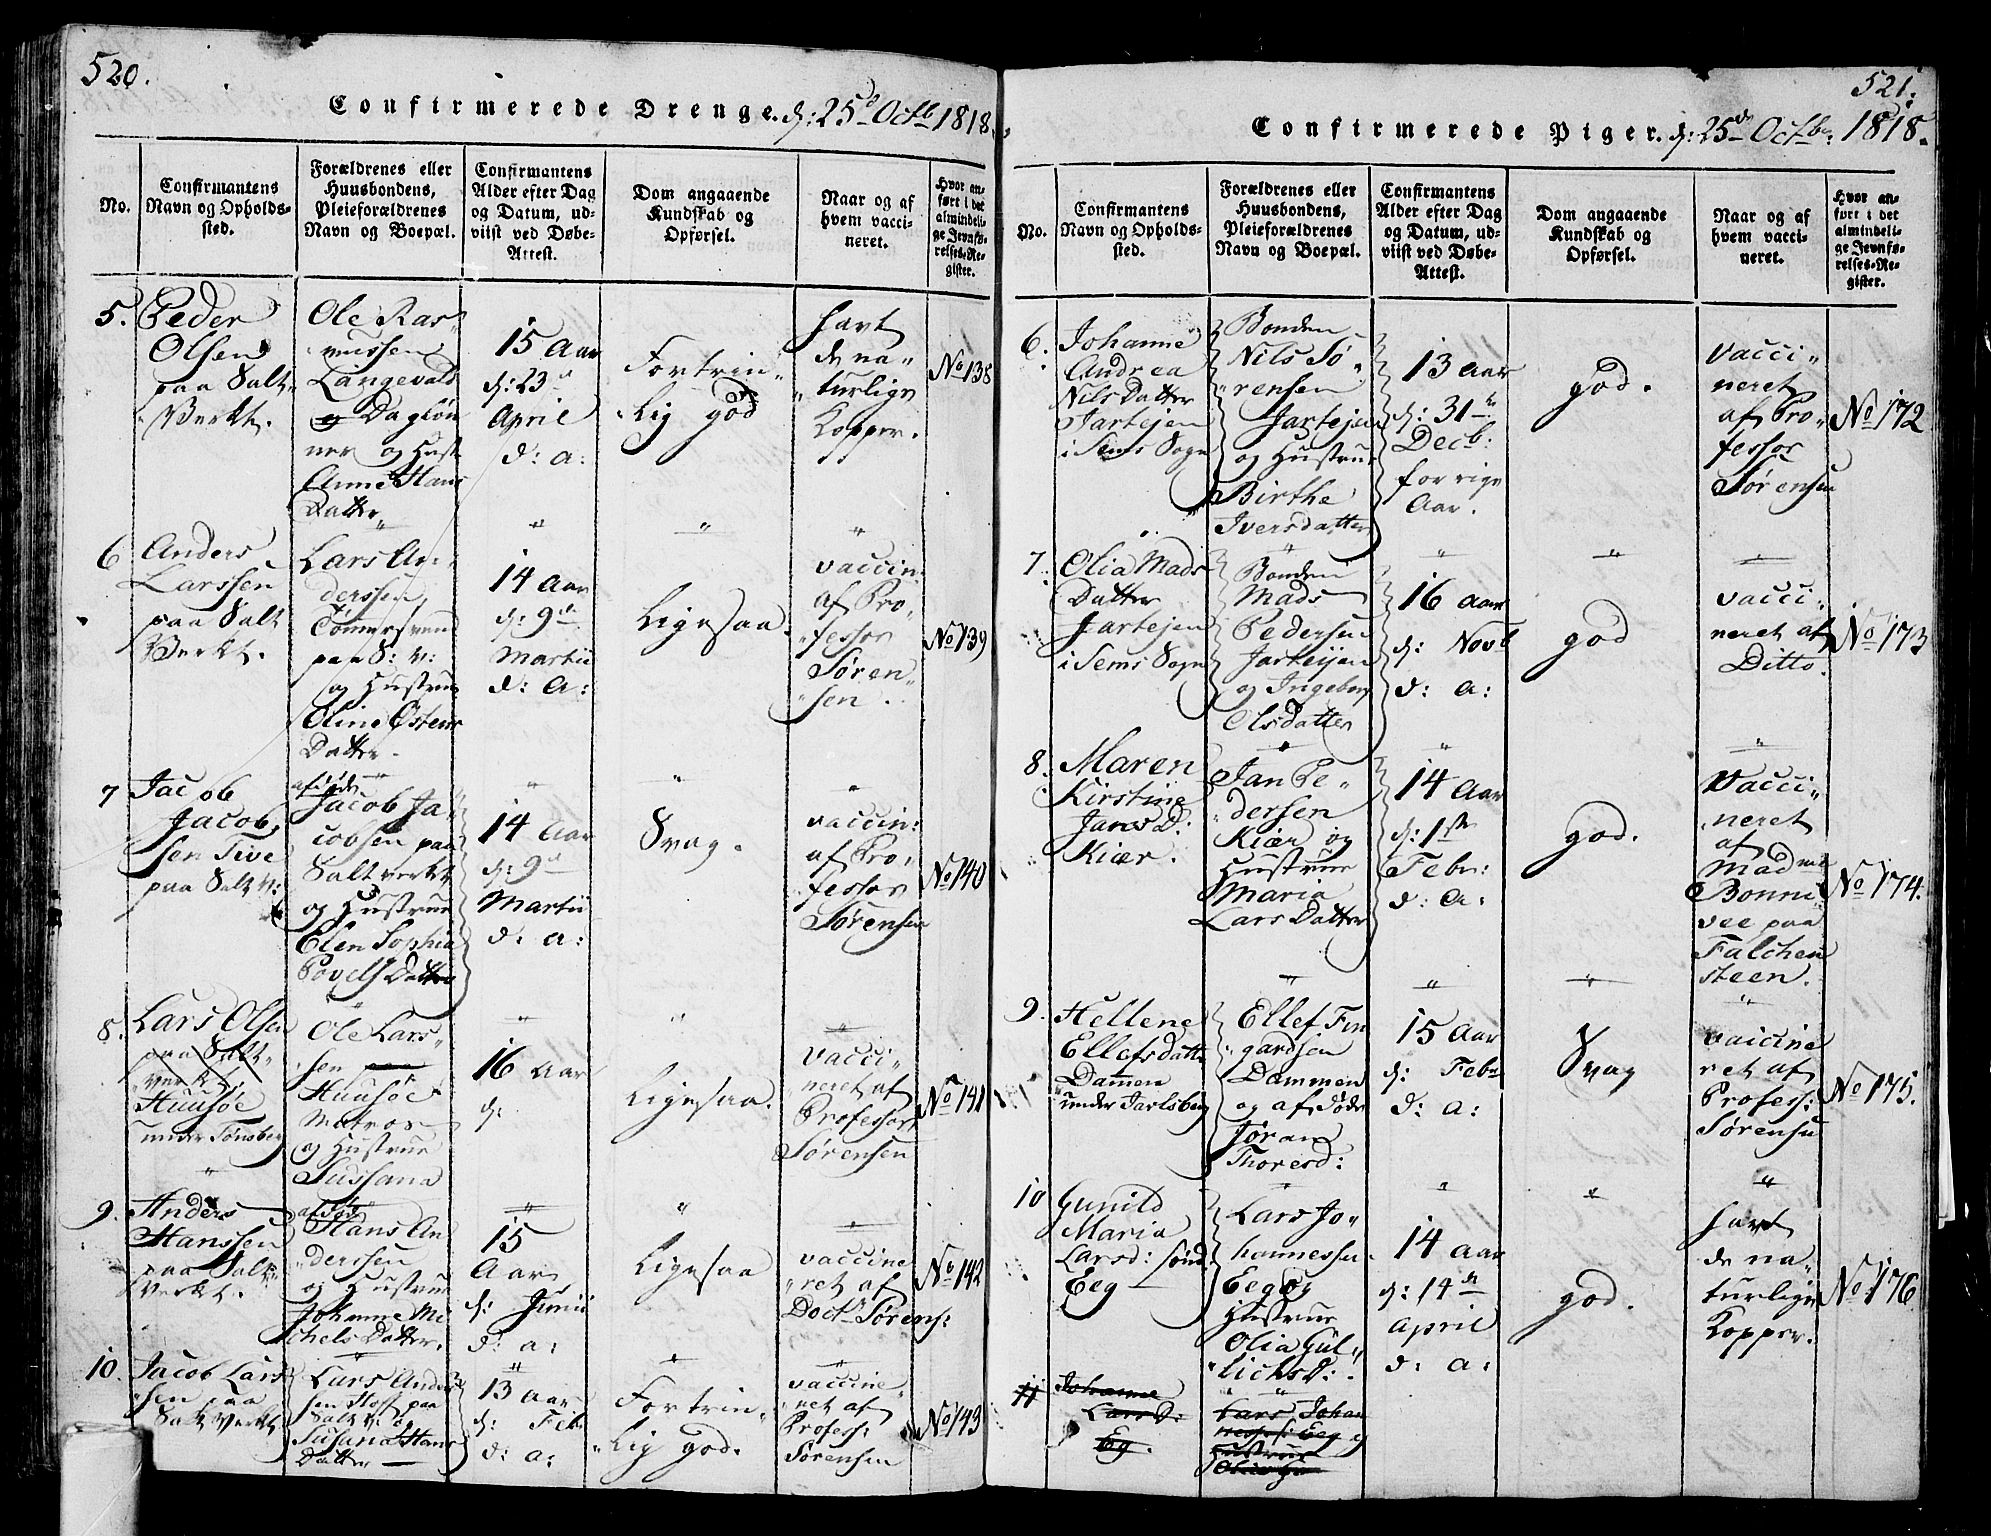 520.
Confirmerede Drenge. d: 25d Octb 1818.
No.
Confirmantens
Navn og Opholds-
sted.
Forældrenes eller
Huusbondens,
Pleieforældrenes
Navn og Boepæl.
Confirmantens
Alder efter Dag
og Datum, ud-
viist ved Døbe-
Attest.
Dom angaaende
Kundskab og
Opførsel.
Naar og af
hvem vacci-
neret.
Hvor an-
ført i det
almindeli-
ge Jevnfø-
relses-Re-
gister.
5.
Peder
Olsen
paa Salt-
Verkt.
Ole Ras-
mussen
Langevald
og Dagløn
ner og Hust
Anne Hans
Datter
15 Aar
d: 23d
April
d: a:
Fortrin-
lig god
havt
de na-
turlige
Kopper.
No 138
6
Anders
Larssen
paa Salt
Verkt.
Lars An-
derssen
Tømersvend
paa S: V:
og Hustrue
Oline Østens
Datter.
14 Aar
d: 9d
Martii
d: a:
Ligesaa.
vaccin.
af Pro-
fessor
Søren-
sen.
No 139
7
Jacob
Jacob-
sen Tive
paa Salt V:
afdøde
Jacob Ja-
cobsen paa
Saltverkt
og Hustrue
Elen Sophia
Povels Datter
14 Aar
d: 9d
Martii
d: a:
Svag.
vaccin:
af Pro-
fessor
Sørensen
No 140
8.
Lars Olsen
paa Salt-
verkt.
Huusøe
under Tønsberg
Ole Lars-
sen paa
Huusøe
Matros
og Hustrue
Sussana
16 Aar
d:
Ligesaa.
vacci-
neret af
Professor
Sørensen
No 141
9.
Anders
Hanssen
paa Salt
Verkt.
afdøde
Hans An
derssen
og Hustrue
Johanne Mi
chels Datter.
15
Aar
d: Junii
d: a:
Ligesaa
vaccine
ret af
Doctr Sørens:
No 142
10.
Jacob Lars
sen paa
Salt Verkt
Lars Ander
sen Hoff paa
Salt V: og
Susana Hans
Datter
13 Aar
d: Feb
d: a:
Fortrin-
lig god.
vaccine-
ret af
Profess:
Sørensen
No 143
521.
Confirmerede Piger. d: 25de Octbr: 1818.
No.
Confirmantens
Navn og Opholds-
sted.
Forældrenes eller
Huusbondens,
Pleieforældrenes
Navn og Boepæl.
Confirmantens
Alder efter Dag
og Datum, ud-
viist ved Døbe-
Attest.
Dom angaaende
Kundskab og
Opførsel.
Naar og af
hvem vacci-
neret.
Hvor an-
ført i det
almindeli-
ge Jevnfø-
relses-Re-
gister.
6.
Johanne
Andrea
Nils Datter
Jartejen
i Sems Sogn
Bonden
Nils Sø-
rensen
Jartejen
og Hustrue
Birthe
Iversdatter
13 Aar
d: 31te
Decb:
forrige
Aar.
god.
Vacci-
neret
af Pro-
fessor
Sørensen
No 172
7.
Olia Mads
Datter
Jartejen
i Sems Sogn
Bonden
Mads
Pedersen
Jarteijen
og Ingeborg
Olsdatter
16 Aar
d: Novb
d: a:
god
vacci-
neret af
Ditto.
No 173
8.
Maren
Kirstine
Jans D:
Kiær.
Jan Pe-
dersen
Kiær og
Hustrue
Maria
Lars Datter
14 Aar
d: 1ste
Febr:
d: a:
god.
Vacci-
neret
af
Madme
Bonne
vee paa
Falchen
steen.
No 174.
9.
Hellene
Ellefsdatter
Dammen
under Jarlsberg
Ellef Fin
gardsen
Dammen
og afdøde
Jøran
Thoresd:
15 Aar
d: Febr
d: a:
Svag
vaicine
ret af
Profess:
Sørensen
No 175.
10
Gunild
Maria
Larsd: sønd
Eeg
Lars Jo-
hannessen
Eeg og
Hustrue
Olia Gul-
lichs D:
14 Aar
d: 14de
April
d: a:
god.
havt
de na-
turlige
Kopper.
No 176
11
Johanne
Lars D:
Eg.
Lars Johan
ness: Eeg og
Hustrue